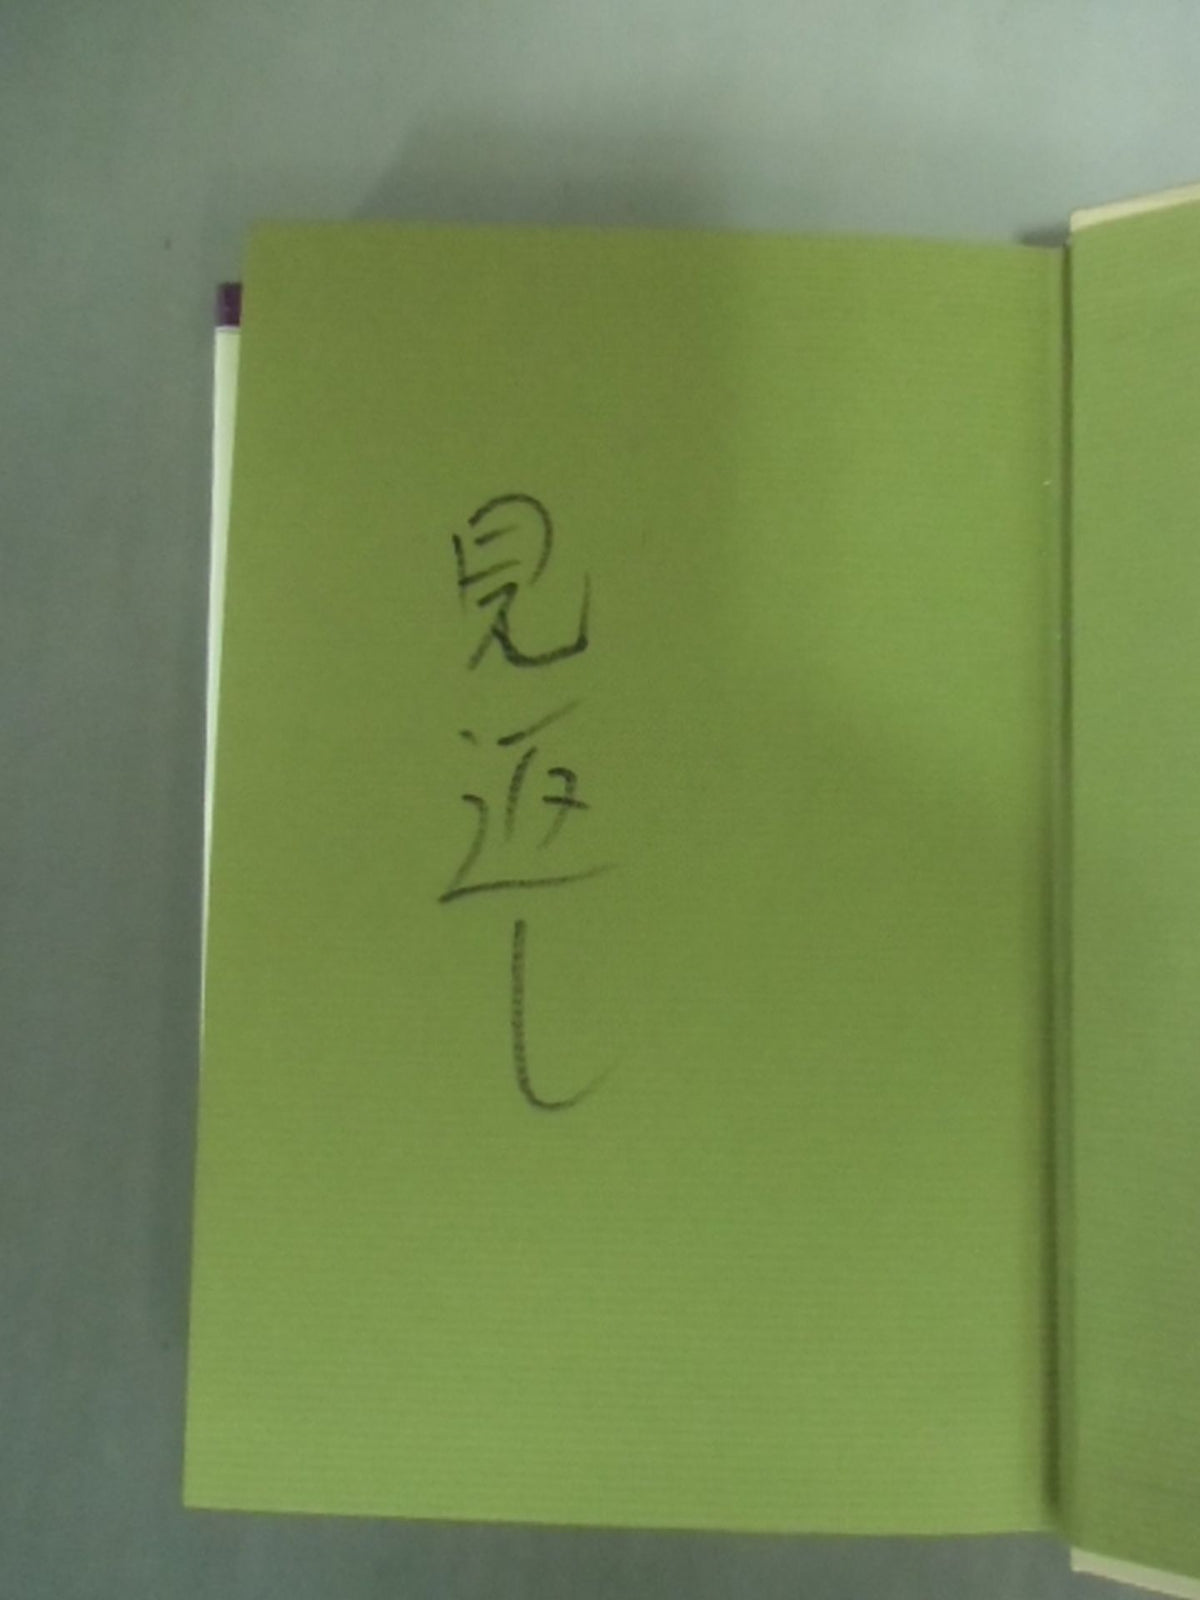 見返し